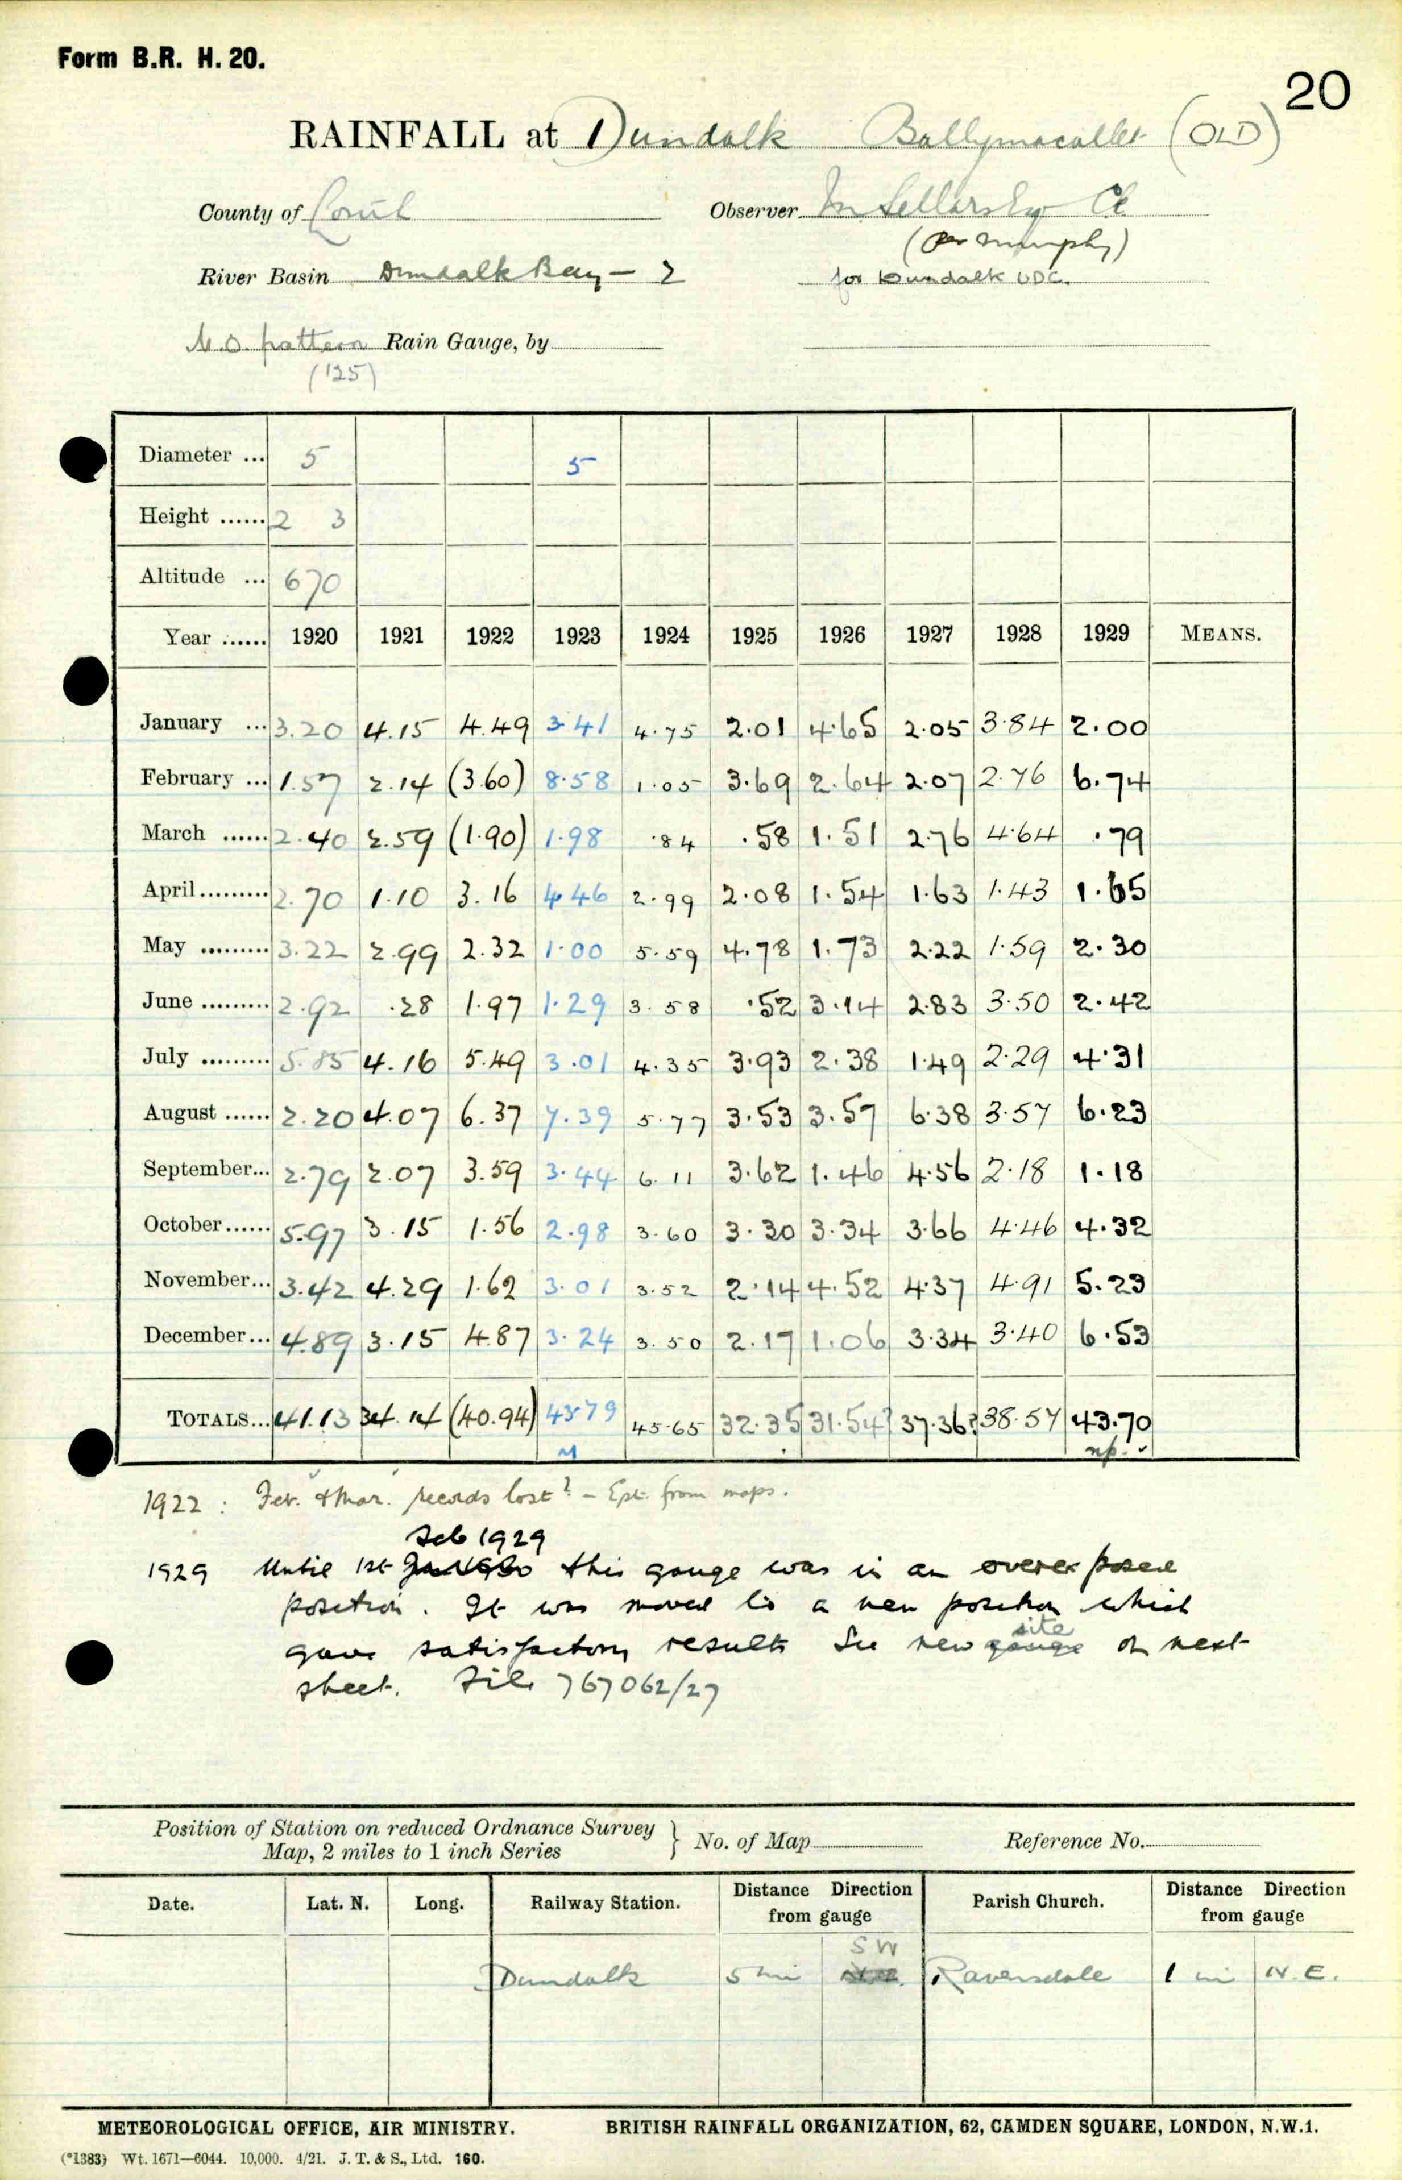 Form B.R. H. 20.
20
RAINFALL at Dundalk Ballymacallet (OLD)
County of Louth Observer Sellars Esq CE
(per Murphy)
River Basin Dundalk Bay - 2 for Dundalk UDC.
M.O. pattern Rain Gauge, by
(125)
Diameter ... 5 5
Height ...... 2 3
Altitude ... 670
Year ...... 1920 1921 1922 1923 1924 1925 1926 1927 1928 1929 MEANS.
January ... 3.20 4.15 4.49 3.41 4.75 2.01 4.65 2.05 3.84 2.00
February ... 1.57 2.14 (3.60) 8.58 1.05 3.69 2.64 2.07 2.76 6.74
March ...... 2.40 2.59 (1.90) 1.98 .84 .58 1.51 2.76 4.64 .79
April ......... 2.70 1.10 3.16 4.46 2.99 2.08 1.54 1.63 1.43 1.65
May ......... 3.22 2.99 2.32 1.00 5.59 4.78 1.73 2.22 1.59 2.30
June ......... 2.92 .28 1.97 1.29 3.58 .52 3.14 2.83 3.50 2.42
July ......... 5.85 4.16 5.49 3.01 4.35 3.93 2.38 1.49 2.29 4.31
August ...... 2.20 4.07 6.37 7.39 5.77 3.53 3.57 6.38 3.57 6.23
September... 2.79 2.07 3.59 3.44 6.11 3.62 1.46 4.56 2.18 1.18
October...... 5.97 3.15 1.56 2.98 3.60 3.30 3.34 3.66 4.46 4.32
November... 3.42 4.29 1.62 3.01 3.52 2.14 4.52 4.37 4.91 5.23
December... 4.89 3.15 4.87 3.24 3.50 2.17 1.06 3.34 3.40 6.53
TOTALS... 41.13 34.14 (40.94) 43.79 45.65 32.35 31.54? 37.36? 38.57 43.70
np.
1922 : Feb. & Mar. records lost? - Est. from maps.
Feb 1929
1929 Until 1st this gauge was in an overexposed
position. It was moved to a new position which
site
gave satisfactory results See new gauge on next
sheet. File 767062/27
Position of Station on reduced Ordnance Survey
Map, 2 miles to 1 inch Series } No. of Map Reference No.
Date. Lat. N. Long. Railway Station. Distance Direction from gauge Parish Church. Distance Direction from gauge
SW
Dundalk 5 mi Ravensdale 1 mi N.E.
METEOROLOGICAL OFFICE, AIR MINISTRY. BRITISH RAINFALL ORGANIZATION, 62, CAMDEN SQUARE, LONDON, N.W.1.
(*1383) Wt. 1671—6044. 10,000. 4/21. J. T. & S., Ltd. 160.